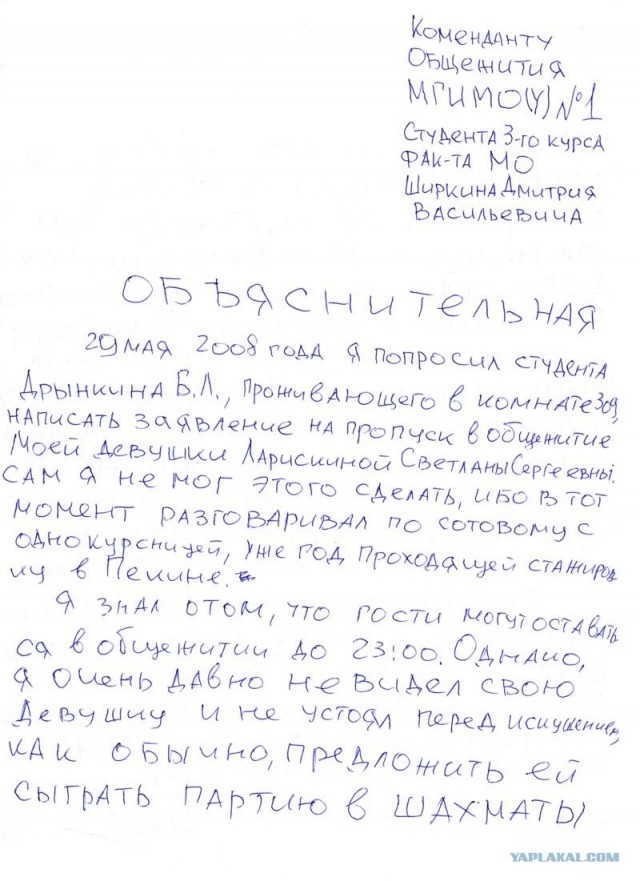 Коменданту
Общежития
МГИМО(У) №1
Студента 3-го курса
Фак-та МО
Ширкина Дмитрия
Васильевича
ОБЪЯСНИТЕЛЬНАЯ
29 мая 2008 года я попросил студента
Дрынкина Б.Л., проживающего в комнате 309,
написать заявление на пропуск в общежитие
Моей девушки Ларискиной Светланы Сергеевны.
Сам я не мог этого сделать, ибо в тот
момент разговаривал по сотовому с
однокурсницей, уже год проходящей стажиров
ку в Пекине.
Я знал о том, что гости могут оставать
ся в общежитии до 23:00. Однако,
я очень давно не видел свою
девушку и не устоял перед искушением,
как обычно, предложить ей
сыграть партию в шахматы
YAPLAKAL.COM